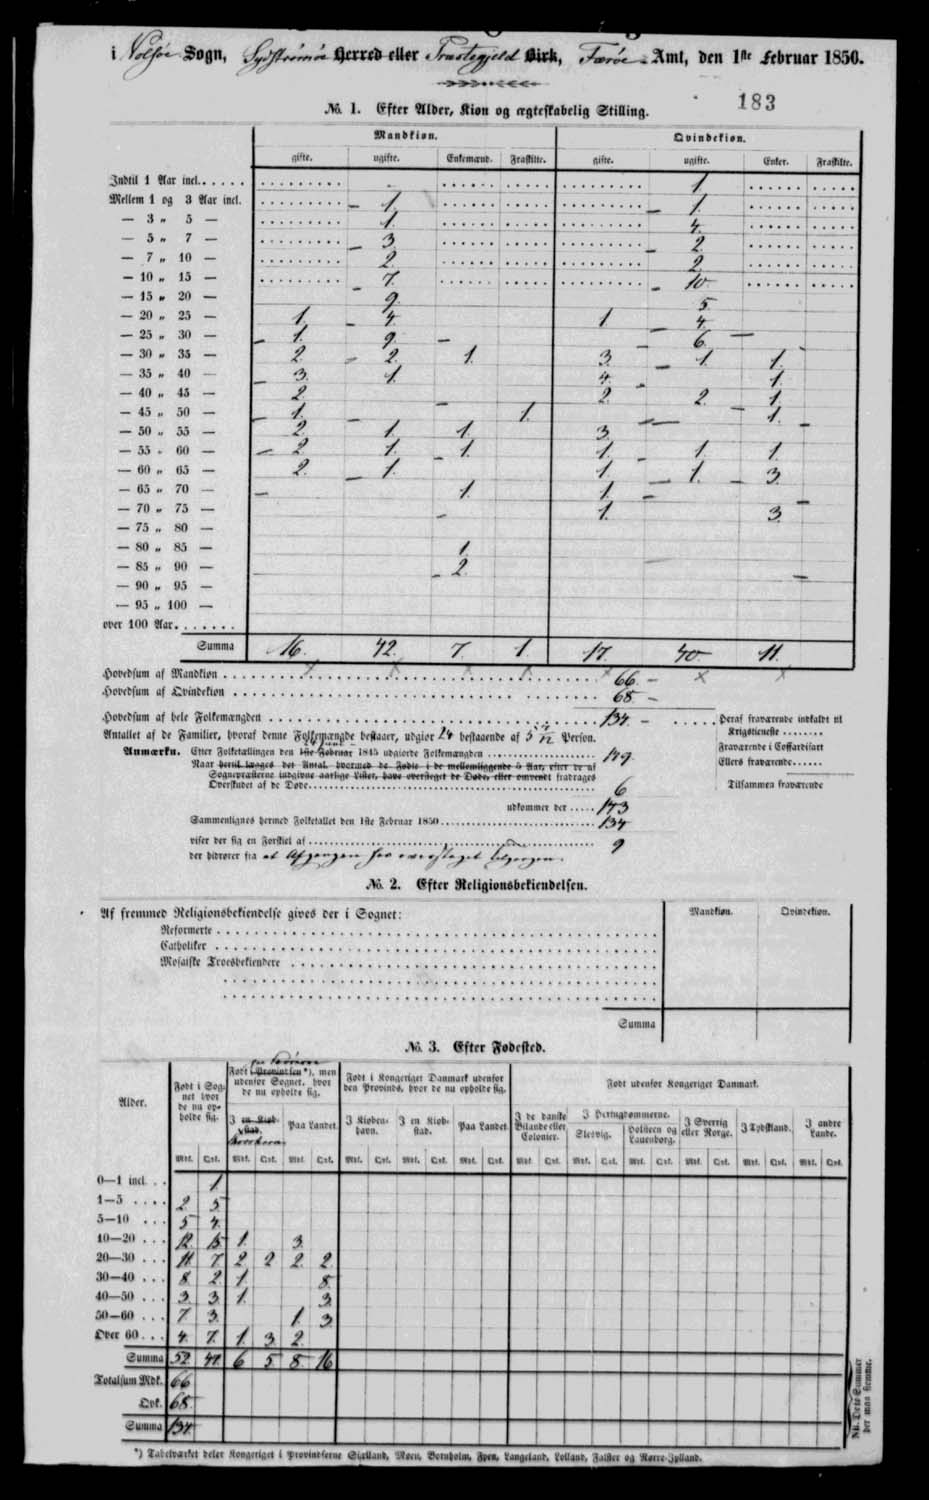 i Nolsøe Sogn, Sydstrømøe Herred eller Præstegjeld Birk, Færøe Amt, den 1ste Februar 1850.
183
No. 1. Efter Alder, Kiøn og ægteskabelig Stilling.
Mandkiøn. Qvindekiøn.
gifte. ugifte. Enkemænd. Fraskilte. gifte. ugifte. Enker. Fraskilte.
Indtil 1 Aar incl. 1.
Mellem 1 og 3 Aar incl. 1. 1.
— 3 „ 5 — 1. 4.
— 5 „ 7 — 3. 2.
— 7 „ 10 — 2. 2.
— 10 „ 15 — 7. 10.
— 15 „ 20 — 9. 5.
— 20 „ 25 — 1. 4. 1 4.
— 25 „ 30 — 1. 9. 6.
— 30 „ 35 — 2. 2. 1. 3. 1. 1.
— 35 „ 40 — 3. 1. 4. 1.
— 40 „ 45 — 2. 2. 2. 1.
— 45 „ 50 — 1. 1. 1.
— 50 „ 55 — 2. 1. 1. 3.
— 55 „ 60 — 2. 1. 1. 1. 1. 1.
— 60 „ 65 — 2. 1. 1. 1. 3.
— 65 „ 70 — 1. 1.
— 70 „ 75 — 1. 3.
— 75 „ 80 —
— 80 „ 85 — 1.
— 85 „ 90 — 2.
— 90 „ 95 —
— 95 „ 100 —
over 100 Aar.
Summa 16. 42. 7. 1. 17. 40. 11.
Hovedsum af Mandkiøn 66.
Hovedsum af Qvindekiøn 68.
Hovedsum af hele Folkemængden 134.
Antallet af de Familier, hvoraf denne Folkemængde bestaaer, udgiør 24 bestaaende af 5 Person.
Anmærkn. Efter Folketællingen den 1ste Februar 1845 udgiorde Folkemængden 149.
Naar hertil lægges det Antal, hvormed de Fødte i de mellemliggende 5 Aar, efter de af
Sognepræsterne indgivne aarlige Lister, have oversteget de Døde, eller omvendt fradrages
Overskudet af de Døde 6
udkommer der 143
Sammenlignes hermed Folketallet den 1ste Februar 1850 134
viser der sig en Forskiel af 9
der hidrører fra at Afgangen har oversteget Tilgangen.
Heraf fraværende indkaldt til
Krigstieneste
Fraværende i Coffardifart
Ellers fraværende
Tilsammen fraværende
No. 2. Efter Religionsbekiendelsen.
Af fremmed Religionsbekiendelse gives der i Sognet: Mandkiøn. Qvindekiøn.
Reformerte
Catholiker
Mosaiske Troesbekiendere
Summa
No. 3. Efter Fødested.
Alder.
Født i Sognet hvor de nu opholde sig.
Født i Provindsen*), men udenfor Sognet, hvor de nu opholde sig.
Født i Kongeriget Danmark udenfor den Provinds, hvor de nu opholde sig.
Født udenfor Kongeriget Danmark.
I en Kiøbstad. Paa Landet.
I Kiøbenhavn. I en Kiøbstad. Paa Landet
I de danske Bilande eller Colonier. I Hertugdømmerne. Slesvig. Holsteen og Lauenborg. I Sverrig eller Norge. I Tydskland. I andre Lande.
Mdk. Qvk. Mdk. Qvk. Mdk. Qvk. Mdk. Qvk. Mdk. Qvk. Mdk. Qvk. Mdk. Qvk. Mdk. Qvk. Mdk. Qvk. Mdk. Qvk. Mdk. Qvk. Mdk. Qvk.
0—1 incl. 1.
1—5 2 5.
5—10 5 4.
10—20 12. 15 1. 3.
20—30 11. 7. 2 2 2. 2.
30—40 8. 2. 1. 8.
40—50 3. 3. 1. 3.
50—60 7. 3. 1. 3.
Over 60 4. 7. 1. 3. 2.
Summa 52. 47. 6 5 8. 16
Totalsum Mdk. 66
Qvk. 68
Summa 134.
NB. Dete Summer der maa stemme.
*) Tabelværket deler Kongeriget i Provindserne Siælland, Møen, Bornholm, Fyen, Langeland, Lolland, Falster og Nørre-Jylland.